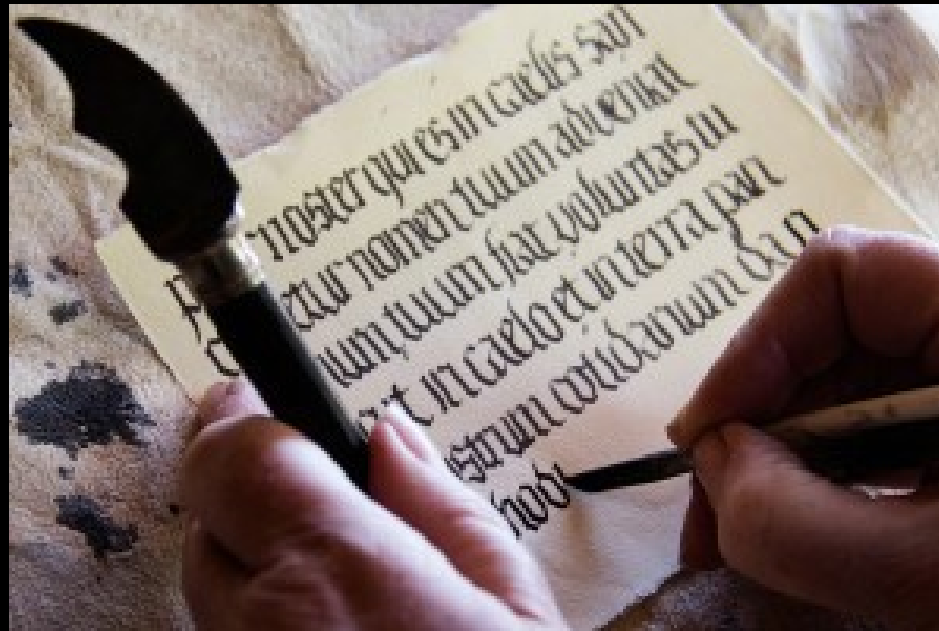 P noster qui es in caelis san
c etur nomen tuum adveniat
num tuum fiat voluntas tu
ut in caelo et in terra pan
strum cotidianum da n
hodi